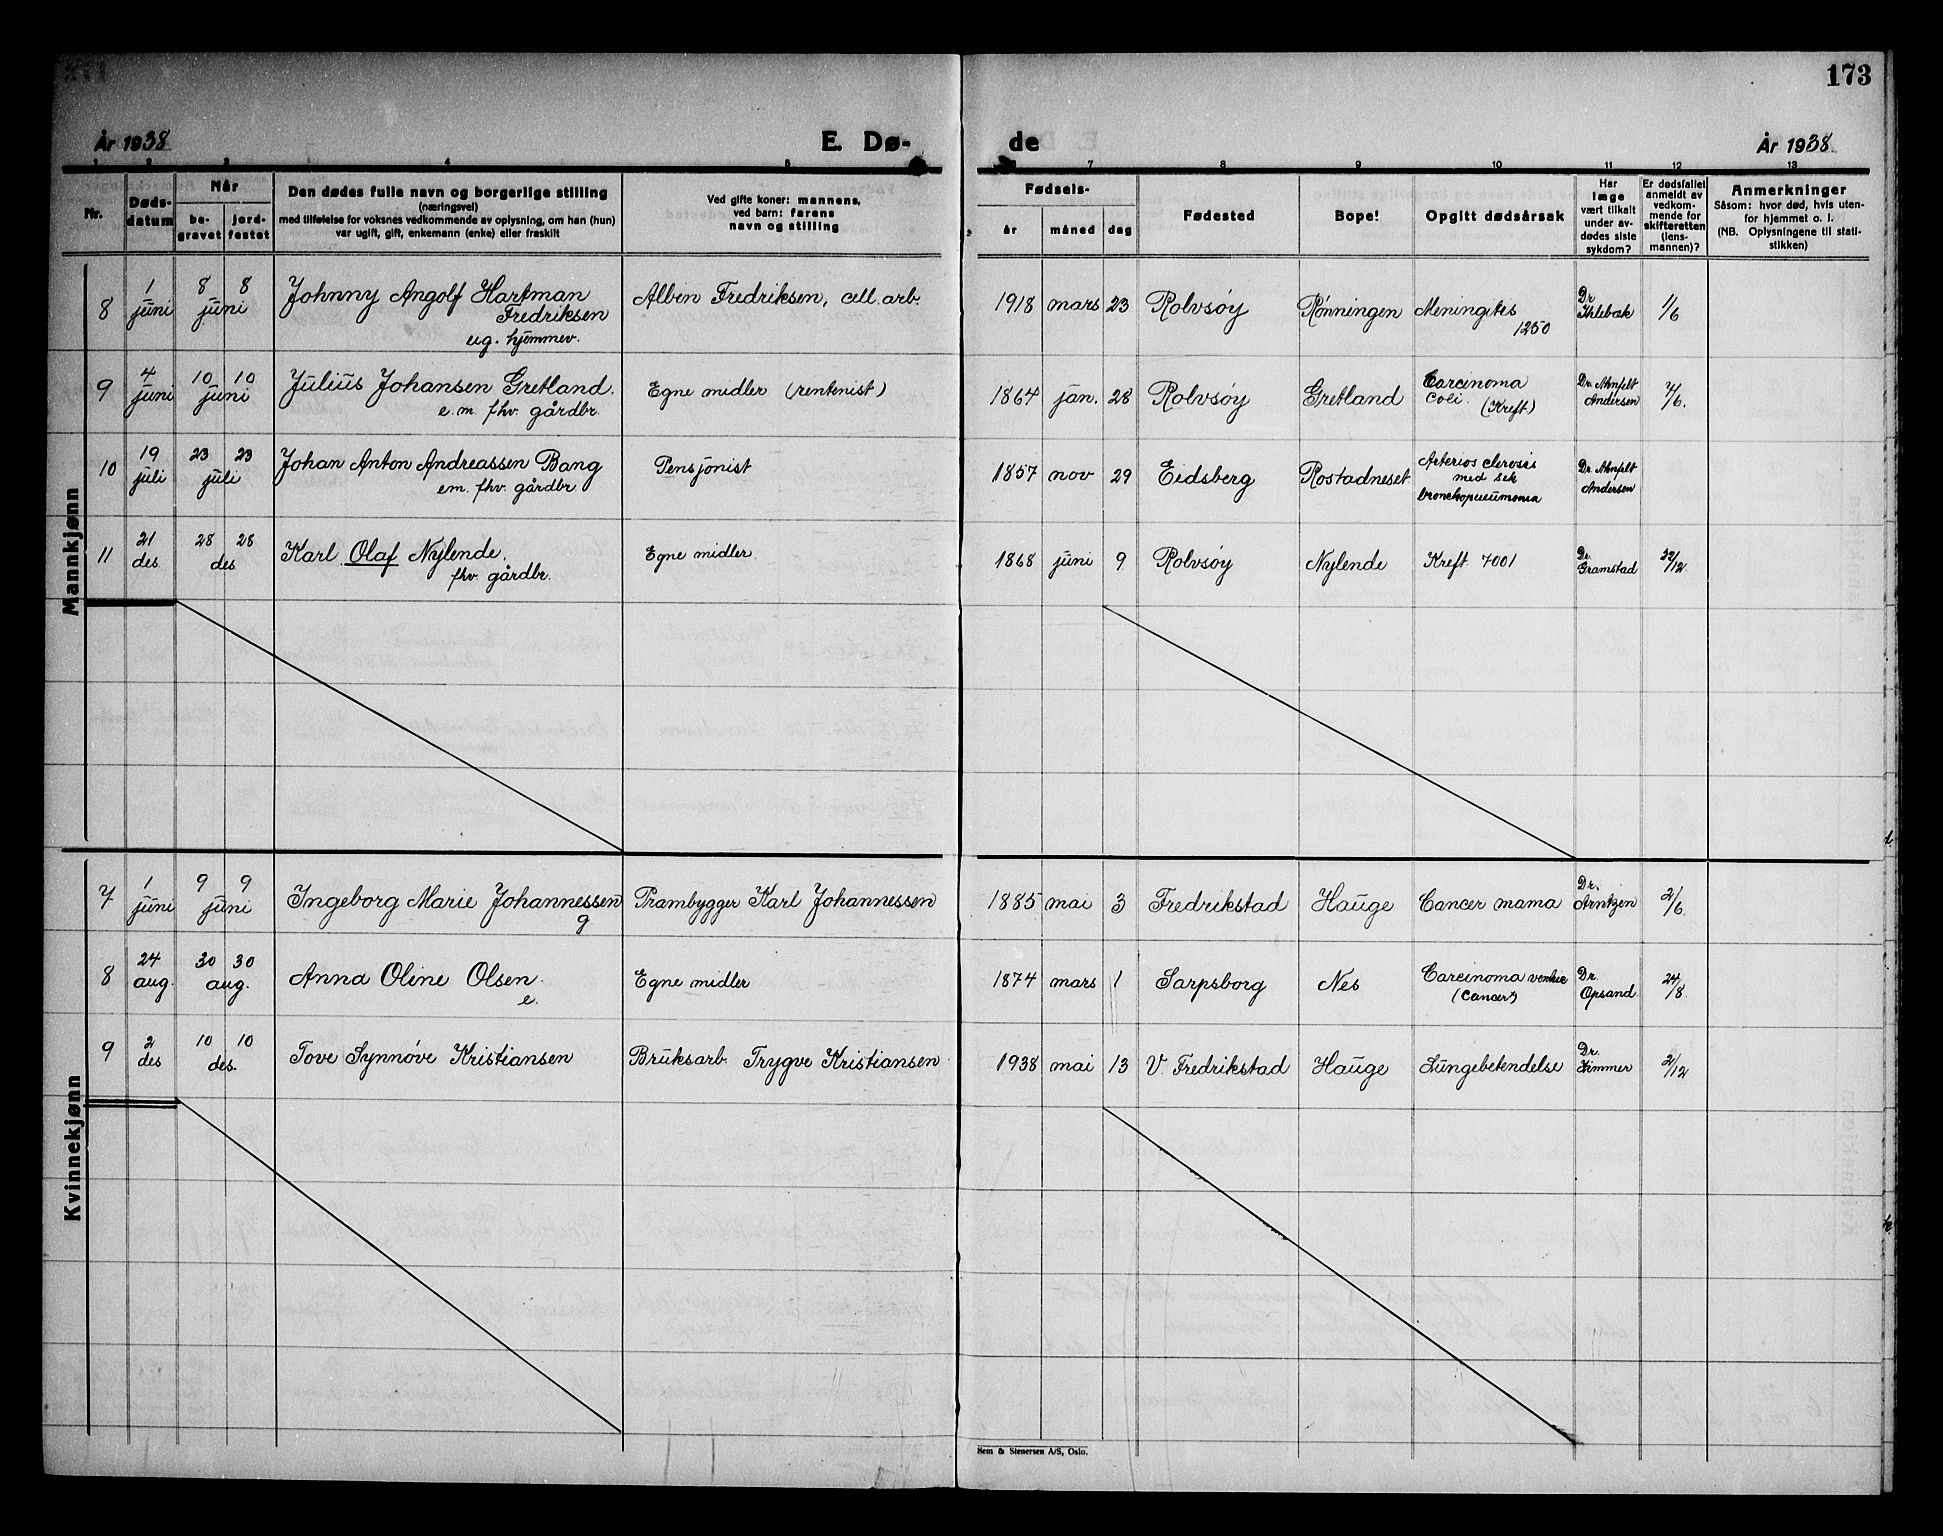 173
År 1938
E. Dø-
de
År 1938
1 2 3 4 5
6 7 8 9 10 11 12 13
Nr.
Døds-
datum
Når
be-
gravet
jord-
festet
Den dødes fulle navn og borgerlige stilling
(næringsvei)
med tilføielse for voksnes vedkommende av oplysning, om han (hun)
var ugift, gift, enkemann (enke) eller fraskilt
Ved gifte koner: mannens,
ved barn: farens
navn og stilling
Fødsels-
år
måned
dag
Fødested
Bopel
Opgitt dødsårsak
Har
læge
vært tilkalt
under av-
dødes siste
sykdom?
Er dødsfallet
anmeldt av
vedkom-
mende for
skifteretten
(lens-
mannen)?
Anmerkninger
Såsom: hvor død, hvis uten-
for hjemmet o. l.
(NB. Oplysningene til stati-
stikken)
Mannkjønn
8
1
juni
8 8
juni
Johnny Angolf Hartman
Fredriksen
ug. hjemmev.
Albin Fredriksen, cell. arb.
1918 mars 23
Rolvsøy
Rønningen
Meningites
1250
Dr
Ihlebæk
1/6
9
4
juni
10 10
juni
Julius Johansen Gretland.
e.m. fhv. gårdbr.
Egne midler (rentenist)
1864 jan. 28
Rolvsøy
Gretland
Carcinoma
coli.
(Kreft)
Dr. Ahnfelt
Andersen
7/6.
10
19
juli
23 23
juli
Johan Anton Andreassen Bang
em. fhv. gårdbr.
Pensjonist
1857 nov 29
Eidsberg
Rostadneset
Arterios clerosis
med sek
bronchopneumonia
Dr. Ahnfelt
Andersen
11
21
des
28 28
des
Karl Olaf Nylende.
fhv. gårdbr.
Egne midler.
1868 juni 9
Rolvsøy
Nylende
Kreft 7001
Dr.
Gramstad
22/12.
Kvinnekjønn
7
1
juni
9 9
juni
Ingeborg Marie Johannessen
g.
Prambygger Karl Johannessen
1885 mai 3
Fredrikstad
Hauge
Cancer mama
Dr.
Arntzen
2/6.
8
24
aug.
30 30
aug.
Anna Oline Olsen.
e.
Egne midler
1874 mars 1
Sarpsborg
Nes
Carcinoma
(Cancer)
Dr.
Opsand.
24/8.
9
2
des
10 10
des.
Tove Synnøve Kristiansen
Bruksarb. Trygve Kristiansen
1938 mai 13
V. Fredrikstad
Hauge
Lungebetendelse
Dr.
Zimmer
2/12
Sem & Stenersen A/S, Oslo.